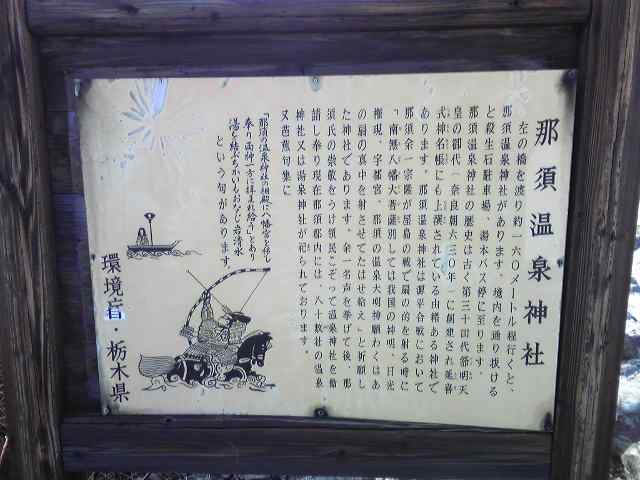 那須温泉神社
左の橋を渡り約一六〇メートル程行くと、
那須温泉神社があります。境内を通り抜ける
と殺生石駐車場、湯本バス停に至ります。
那須温泉神社の歴史は古く第三十四代舒明天
皇の御代(奈良朝六三〇年)に創建され延喜
式神名帳にも上撰されている由緒ある神社で
あります。那須温泉神社は源平合戦において
那須余一宗隆が屋島の戦で扇の的を射る時に
「南無八幡大菩薩別しては我国の神明、日光
権現、宇都宮、那須の温泉大明神願わくはあ
の扇の真中を射させてたばせ給え」と祈願し
た神社であります。余一名声を挙げて後、那
須氏の崇敬をうけ領民こぞって温泉神社を勧
請し奉り現在那須郡内には、八十数社の温泉
神社又は湯泉神社が祀られております。
又芭蕉句集に
「那須の温泉神社の相殿に八幡宮を移し
奉り両神一方に拝まれ給う」とあり
湯を結ぶちかいもおなじ岩清水
という句があります。
環境省・栃木県